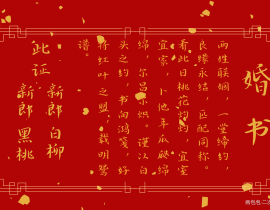 婚书
两姓联姻，一堂缔约，
良缘永结，匹配同称。
看此日桃花灼灼，宜室
宜家，卜他年瓜瓞绵
绵，尔昌尔炽。谨以白
头之约，书向鸿笺，好
将红叶之盟，载明鸳
谱。
此证
新郎 白柳
新郎 黑桃